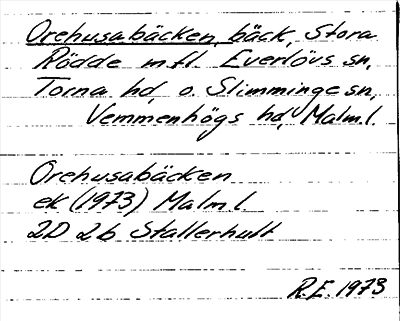 Orehusabäcken, bäck, Stora
Rödde m fl. Everlövs sn,
Torna hd, o. Slimminge sn,
Vemmenhögs hd, Malm.l.
Orehusabäcken
ek (1973) Malm l.
2D 2b Stallerhult
R.E. 1973